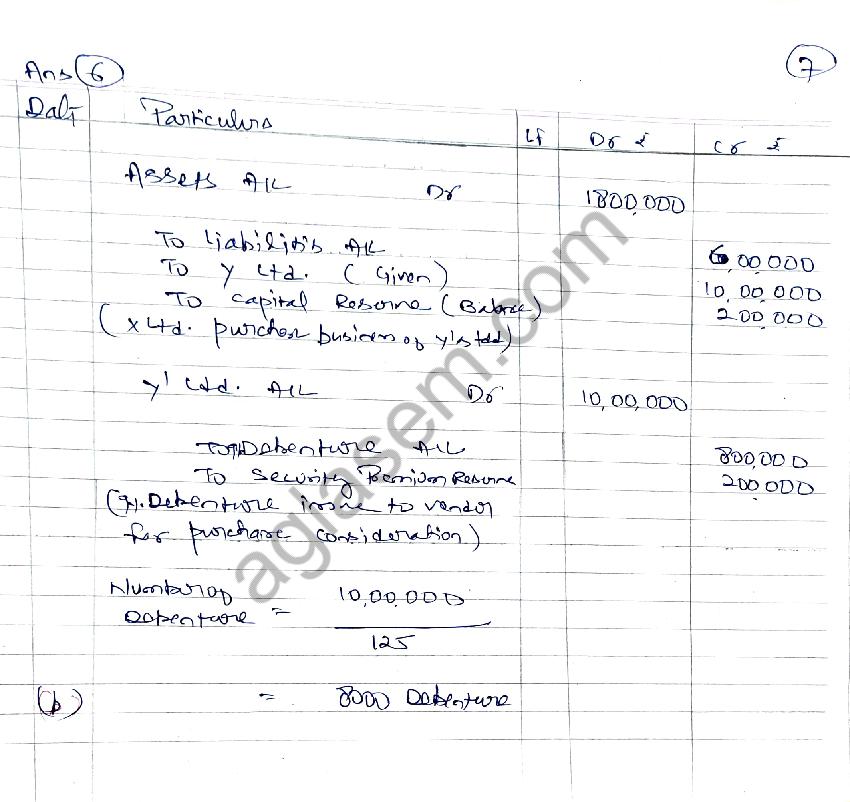 Ans 6
7
Date Particulars Lf Dr ₹ Cr ₹
Assets A/c Dr 1800,000
To Liabilities A/c 6,00,000
To Y Ltd. (Given) 10,00,000
To Capital Reserve (Balance) 200,000
(X Ltd. purchase business of Y's Ltd)
Y' Ltd. A/c Dr 10,00,000
Debenture A/c 800,000
To Security Premium Reserve 200,000
Debenture issue to vendor
for purchase consideration)
Number of
Debenture = 10,00,000
125
(b) = 8000 Debenture
aglasem.com